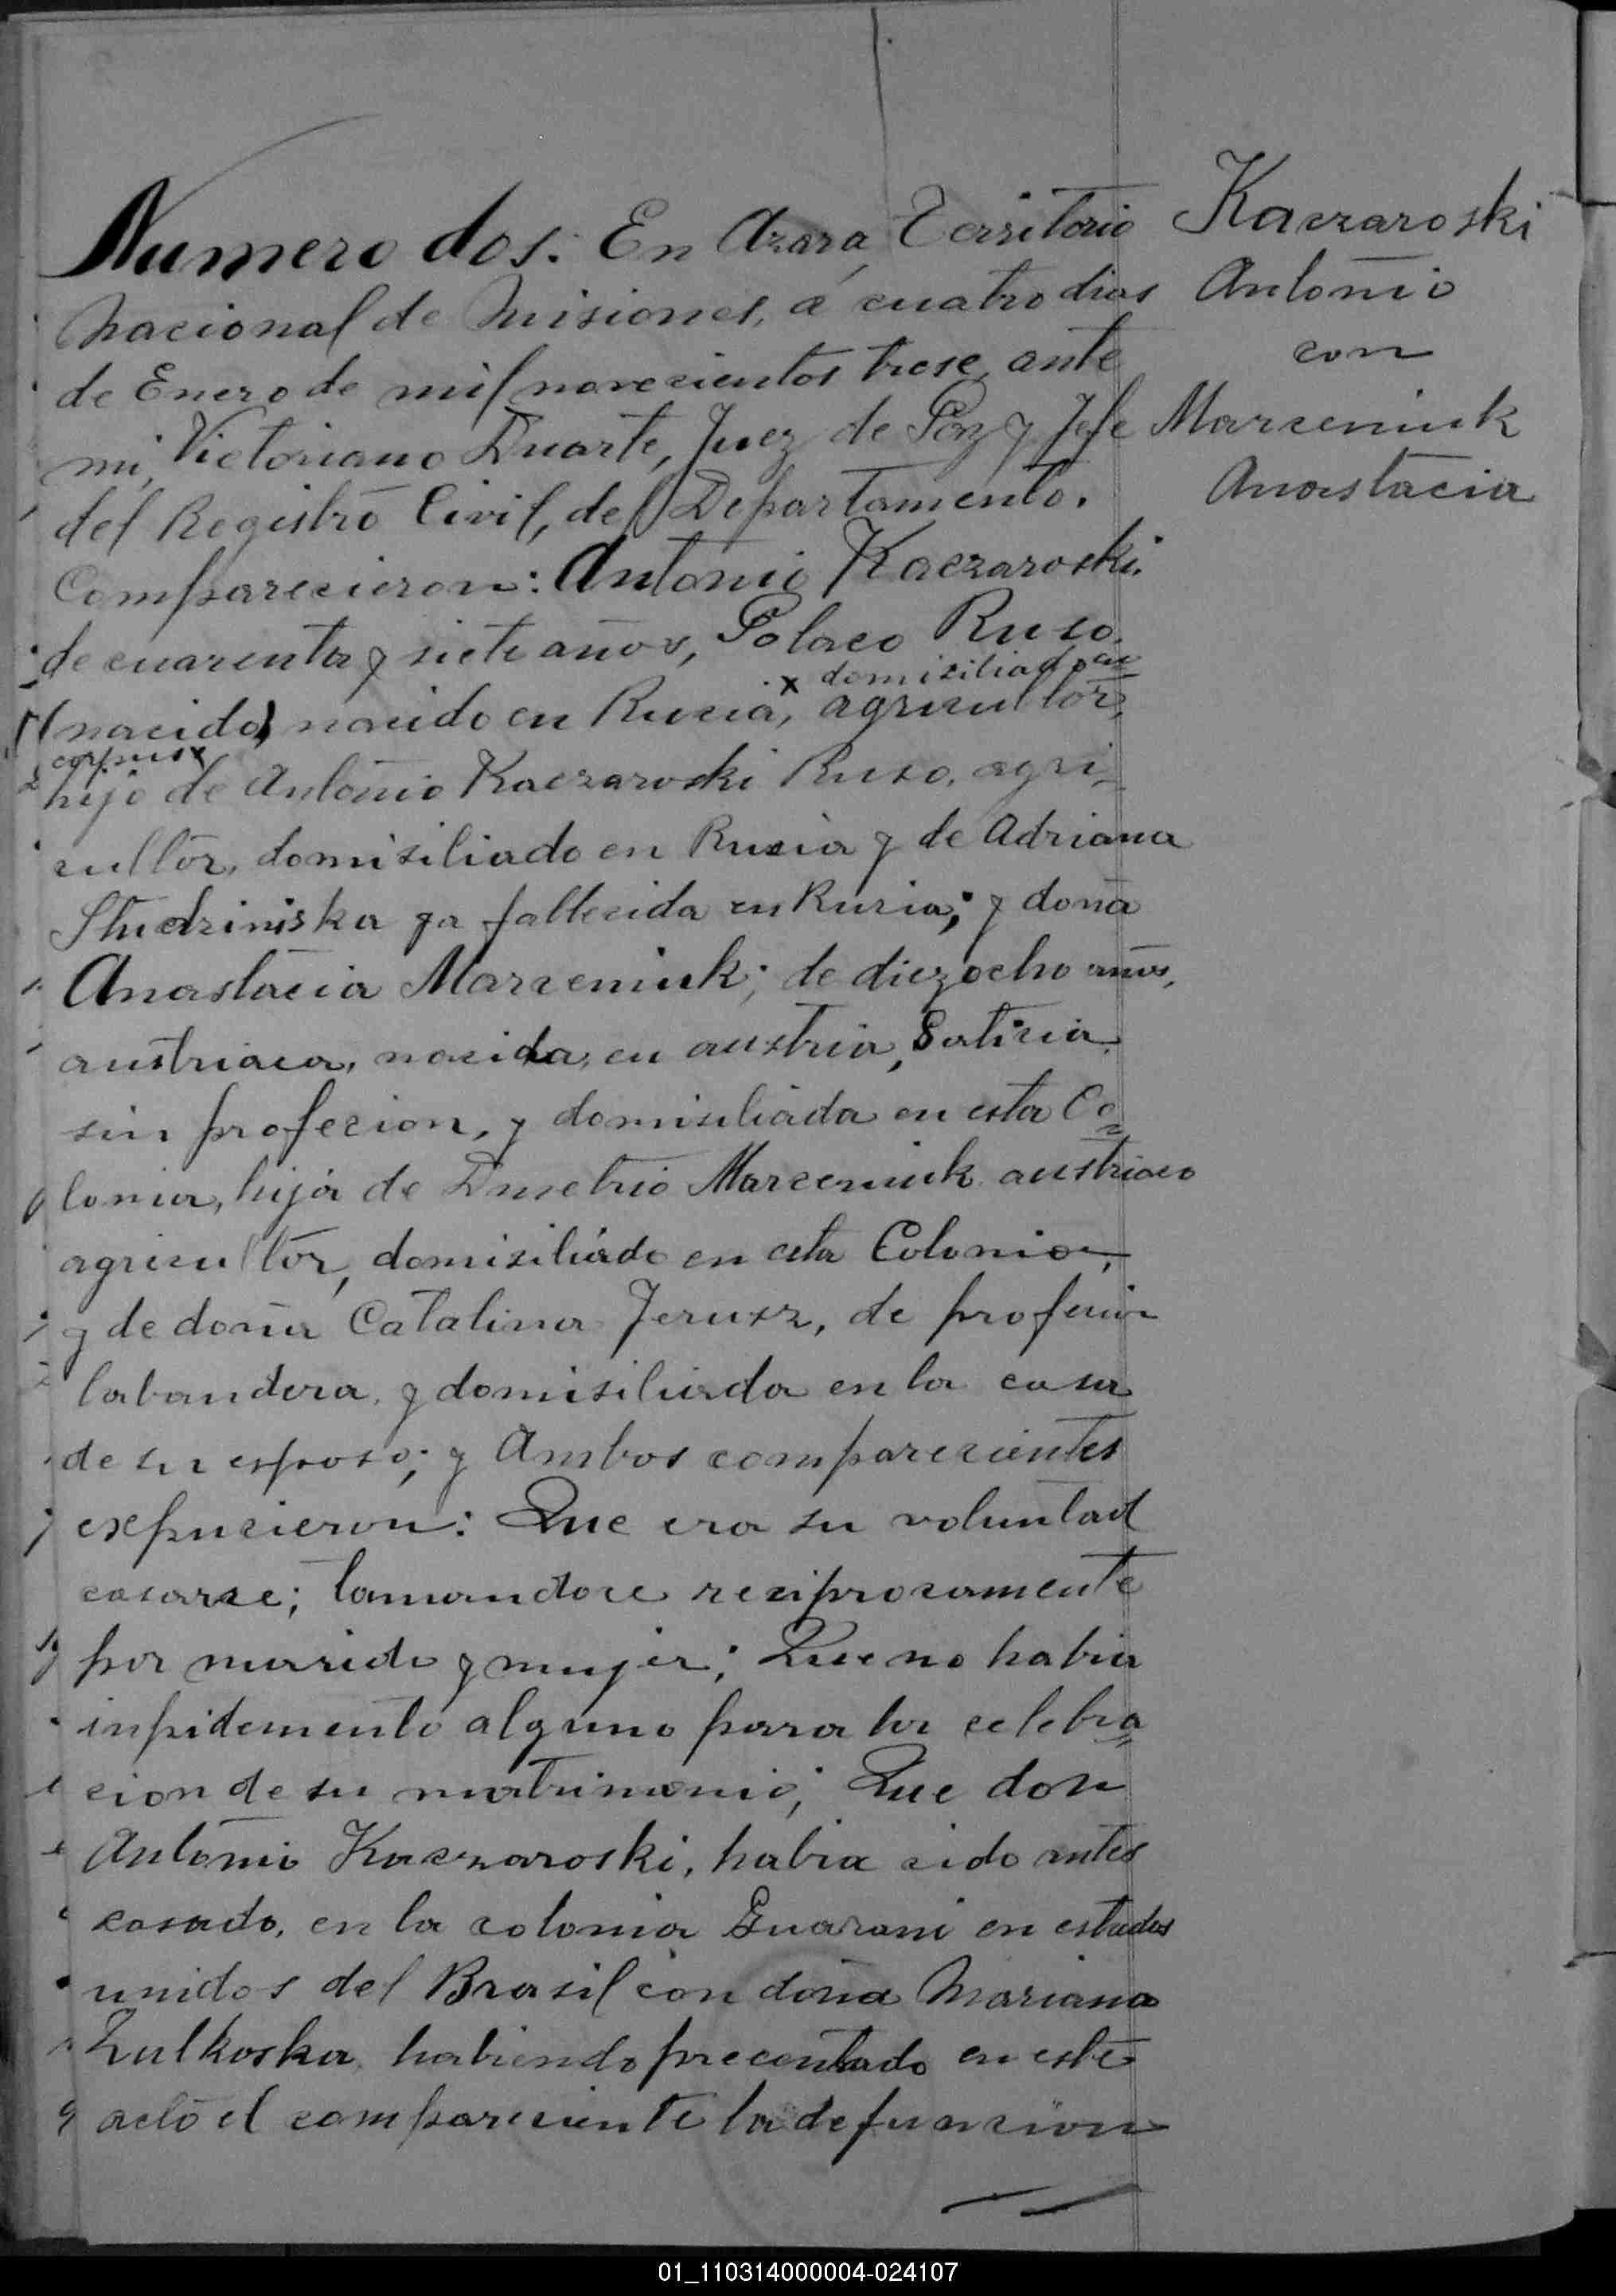 Numero dos. En Azara, Territorio
Nacional de Misiones, á cuatro dias
de Enero de mil novecientos trese, ante
mi, Victoriano Duarte, Juez de Paz y Jefe
del Registro Civil, del Departamento.
Comparecieron: Antonio Kaczaroski.
de cuarenta y siete años, Polaco Ruso.
x domisiliado en
(nacido) nacido en Rucia, agricultor,
corpus x
hijo de Antonio Kaczaroski Ruso, agri-
cultor, domisiliado en Rusia y de Adriana
Studziniska ya fallecida en Rusia; y doña
Anastacia Marzeniuk; de diez ocho años,
austriaca, nacida, en austria, Galicia
sin profecion, y domisiliada en esta Co=
lonia, hija de Dmetrio Marzeniuk austriaco
agricultor, domisiliado en esta Colonia,
y de doña Catalina Jerusz, de profecion
labandera, y domisiliada en la casa
de su esposo; y Ambos comparecientes
expucieron: Que era su voluntad
casarse; tomandoce reciprocamente
por marido y mujer; Que no habia
inpidemento alguno para la celebra=
cion de su matrimonio; Que don
Antonio Kaczaroski, habia cido antes
casado, en la colonia Guarani en estados
unidos del Brasil con doña Mariana
Zulkoska habiendo precentado en este
acto el compareciente la defuncion
Kaczaroski
Antonio
con
Marzeniuk
Anastacia
01_110314000004-024107